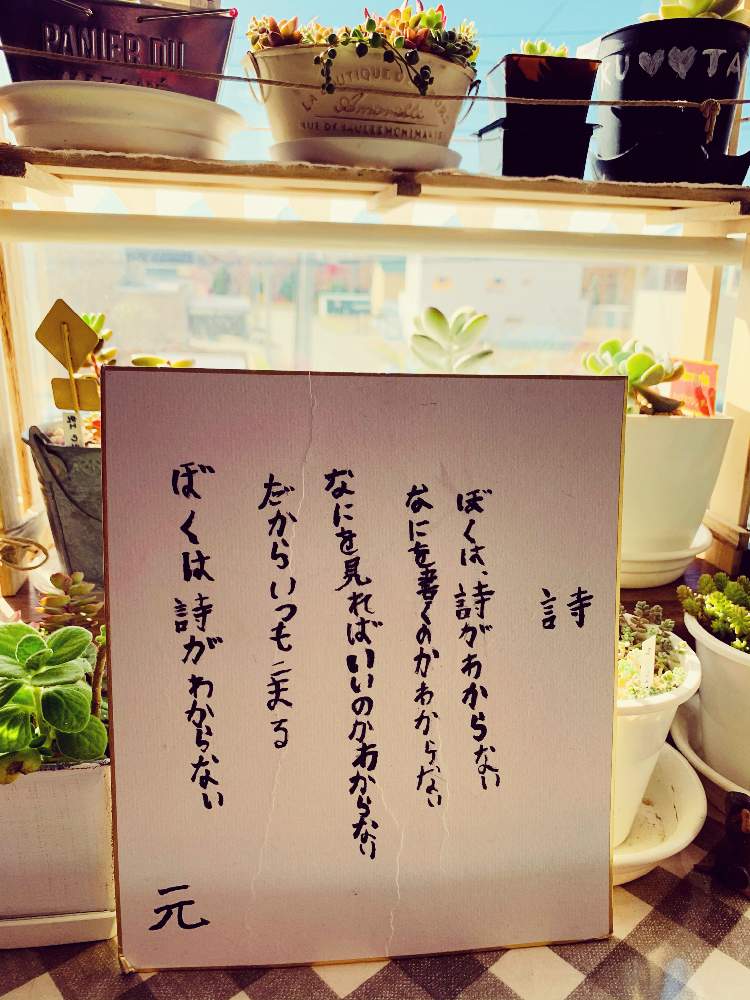 詩
ぼくは、詩がわからない
なにを書くのかわからない
なにを見ればいいのかわからない
だからいつもこまる
ぼくは詩がわからない
元
PANIER DU
LA BOUTIQUE
RUE DE